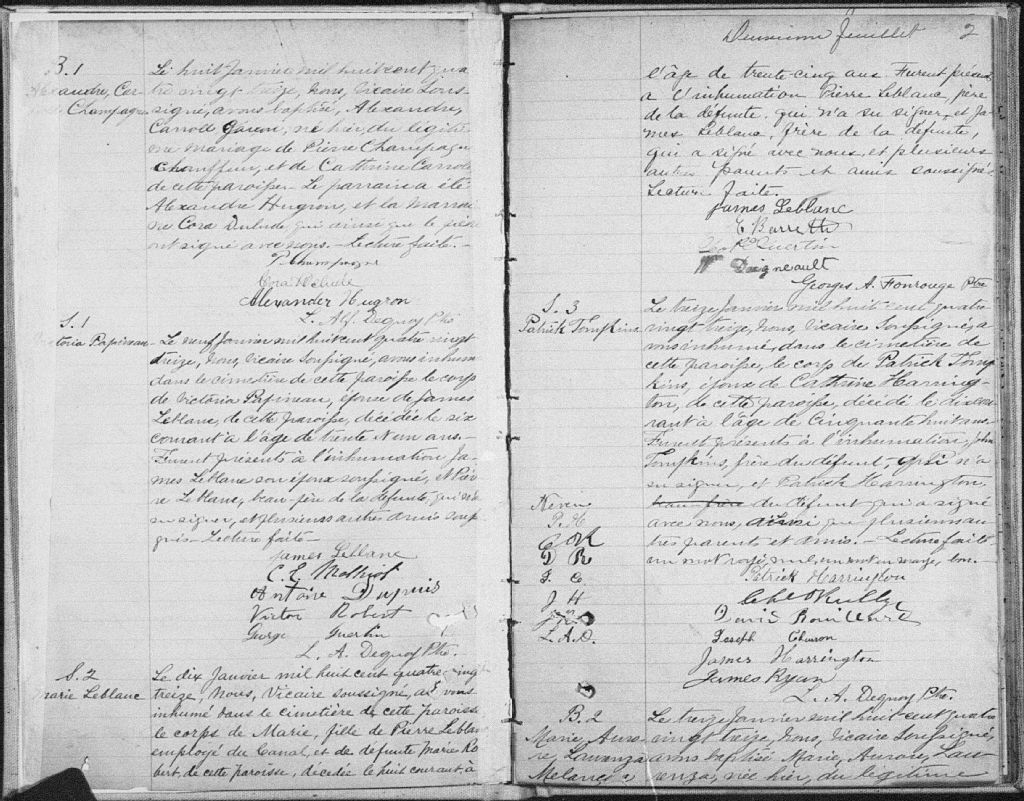 B.1
Alexandre, Car-
Champagne
Le huit Janvier mil huit cent qua
tre vingt treize, Nous, Vicaire Sous-
signé, avons baptisé, Alexandre,
Carroll né hier, du légiti
me mariage de Pierre Champagne
Chauffeur, et de Cathrine Carroll
de cette paroisse. Le parrain a été
Alexandre Hugron, et la Marrai
ne Cora qui ainsi que le père
ont signé avec nous. — Lecture faite. —
P. Champagne
Cora
Alexander Hugron
L. Alf. Dequoy Ptre
S.1
Victoria Papineau
Le neuf Janvier mil huit cent quatre vingt
treize, Nous, Vicaire Soussigné, avons inhumé
dans le cimetière de cette paroisse le corps
de Victoria Papineau, épouse de James
Leblanc, de cette paroisse, décédée le six
courant à l'âge de trente N un ans. —
Furent présents à l'inhumation Ja-
mes Leblanc son époux soussigné, et Pier
re Leblanc, beau-père de la défunte, qui n'a
su signer, et plusieurs autres amis sous
signés — Lecture faite —
James Leblanc
C. E. Mathiot
Antoine Dupuis
Victor Robert
George Guertin
L. A. Dequoy Ptre.
S.2
Marie Leblanc
Le dix Janvier mil huit cent quatre vingt
treize, Nous, Vicaire soussigné, avons
inhumé dans le cimetière de cette paroisse
le corps de Marie, fille de Pierre Leblanc
employé du Canal, et de defunte Marie Ro
bert, de cette paroisse, décédée le huit courant, à
Deuxième feuillet 2
l'âge de trente cinq ans Furent présents
a l'inhumation Pierre Leblanc, père
de la défunte, qui n'a su signer, et Ja-
mes Leblanc, frère de la defunte,
qui a signé avec nous, et plusieurs
autres parents et amis soussignés
Lecture faite.
James Leblanc
C Barrette
Guertin
Daigneault
Georges A. Fonrouge Ptre
S.3
Patrick Tompkins
Le treize Janvier mil huit cent quatre
vingt treize, Nous, Vicaire Soussigné, a
vons inhumé, dans le cimetière de
cette paroisse, le corps de Patrick Tomp
kins, époux de Cathrine Harring-
ton, de cette paroisse, décédé le dix cou
rant à l'âge de Cinquante huit ans
Furent présents à l'inhumation, John
Tompkins, frère du défunt, qui n'a
su signer, et Patrick Harrington,
beau-frère du défunt qui a signé
avec nous, ainsi que plusieurs au
tres parents et amis. — Lecture faite
un mot rayé, nul, un mot en marge, bon. —
Neveu
P. H
C OR
D R
J. C
J H
L. A. D.
Patrick Harrington
Chs O'Reilly
David
Joseph Charon
James Harrington
James Ryan
L. A. Dequoy Ptre.
B.2
Marie, Auro-
re, Laurenza
Melançon
Le treize Janvier mil huit cent quatre
vingt treize, Nous, Vicaire Soussigné,
avons baptisé Marie, Aurore, Lau-
renza, née hier, du légitime